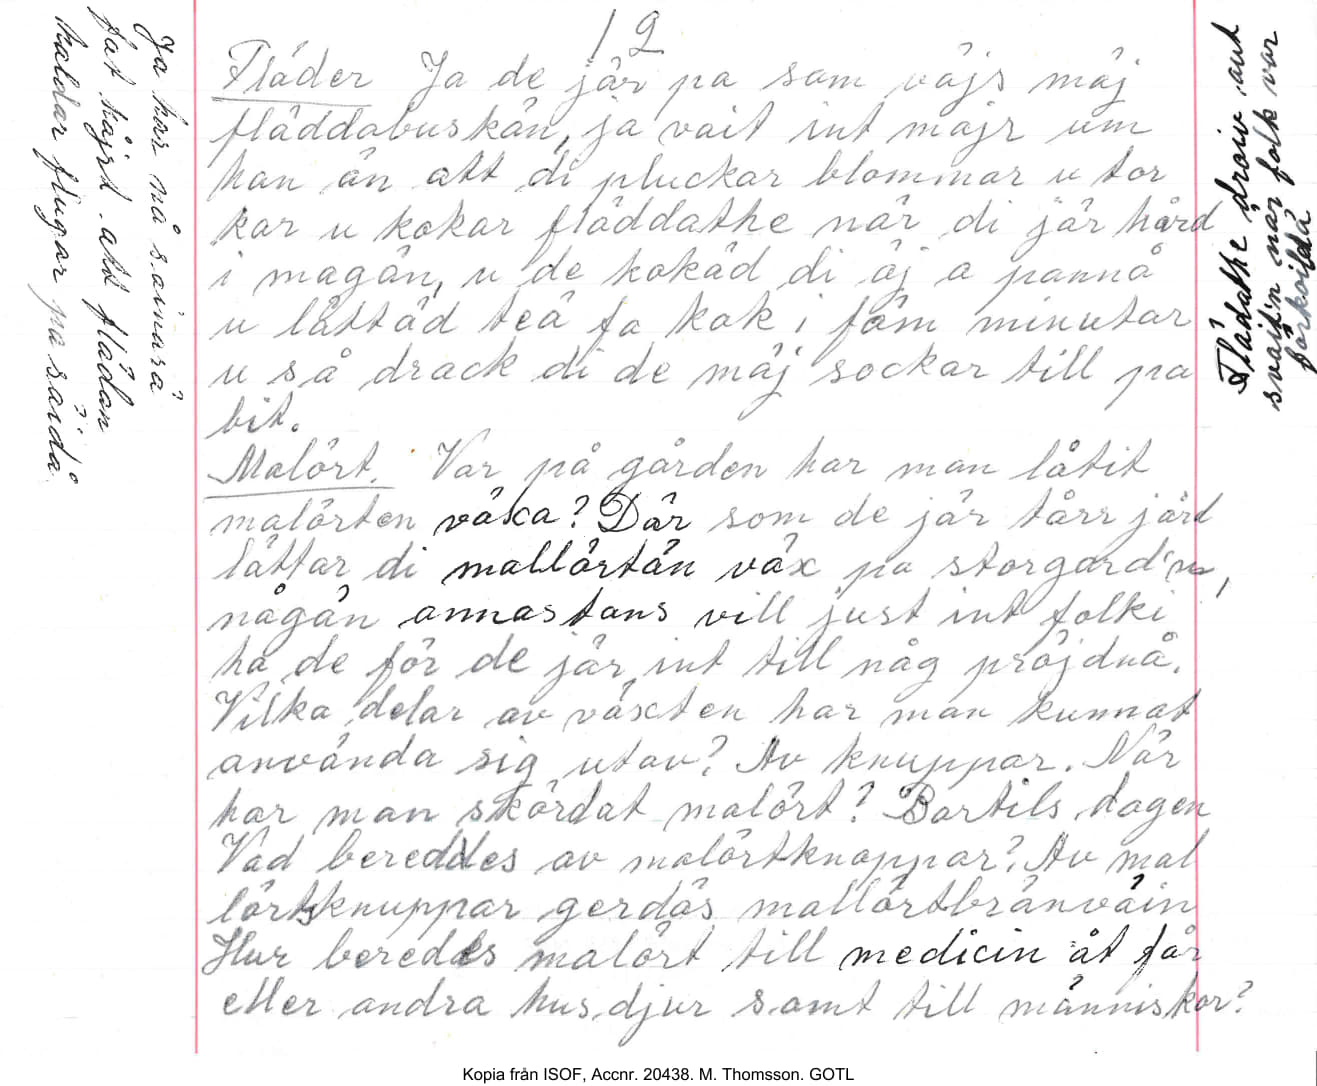 12
Fläder Ja de jär pa sam väjs mäj
fläddabuskän, ja vait int majr um
han än att di pluckar blommar u tor
kar u kokar fläddathe när di jär hård
i magän, u de kokäd di äj a pannå
u lättäd teä fa kok i fäm minutar
u så drack di de mäj sockar till pa
bit.
Malört. Var på gården har man låtit
malörten växa? Där som de jär tårr järd
lättar di mallörtän väx pa storgard'n,
någän annastans vill just int folki
ha de för de jär int till någ pröjdnå.
Vilka delar av växten har man kunnat
använda sig utav? Av knuppar. När
har man skördat malört? Bartils dagen
Vad bereddes av malörtknoppar? Av mal
lörtsknuppar gerdäs mallörtbränväin
Hur bereddes malört till medicin åt får
eller andra husdjur samt till människor?
Ja har nå sainara
fat häjrt att flädan
kaldar flugar pa saidå
Flädathe draiv aut
svait'n när folk var
förkoildä
Kopia från ISOF, Accnr. 20438. M. Thomsson. GOTL